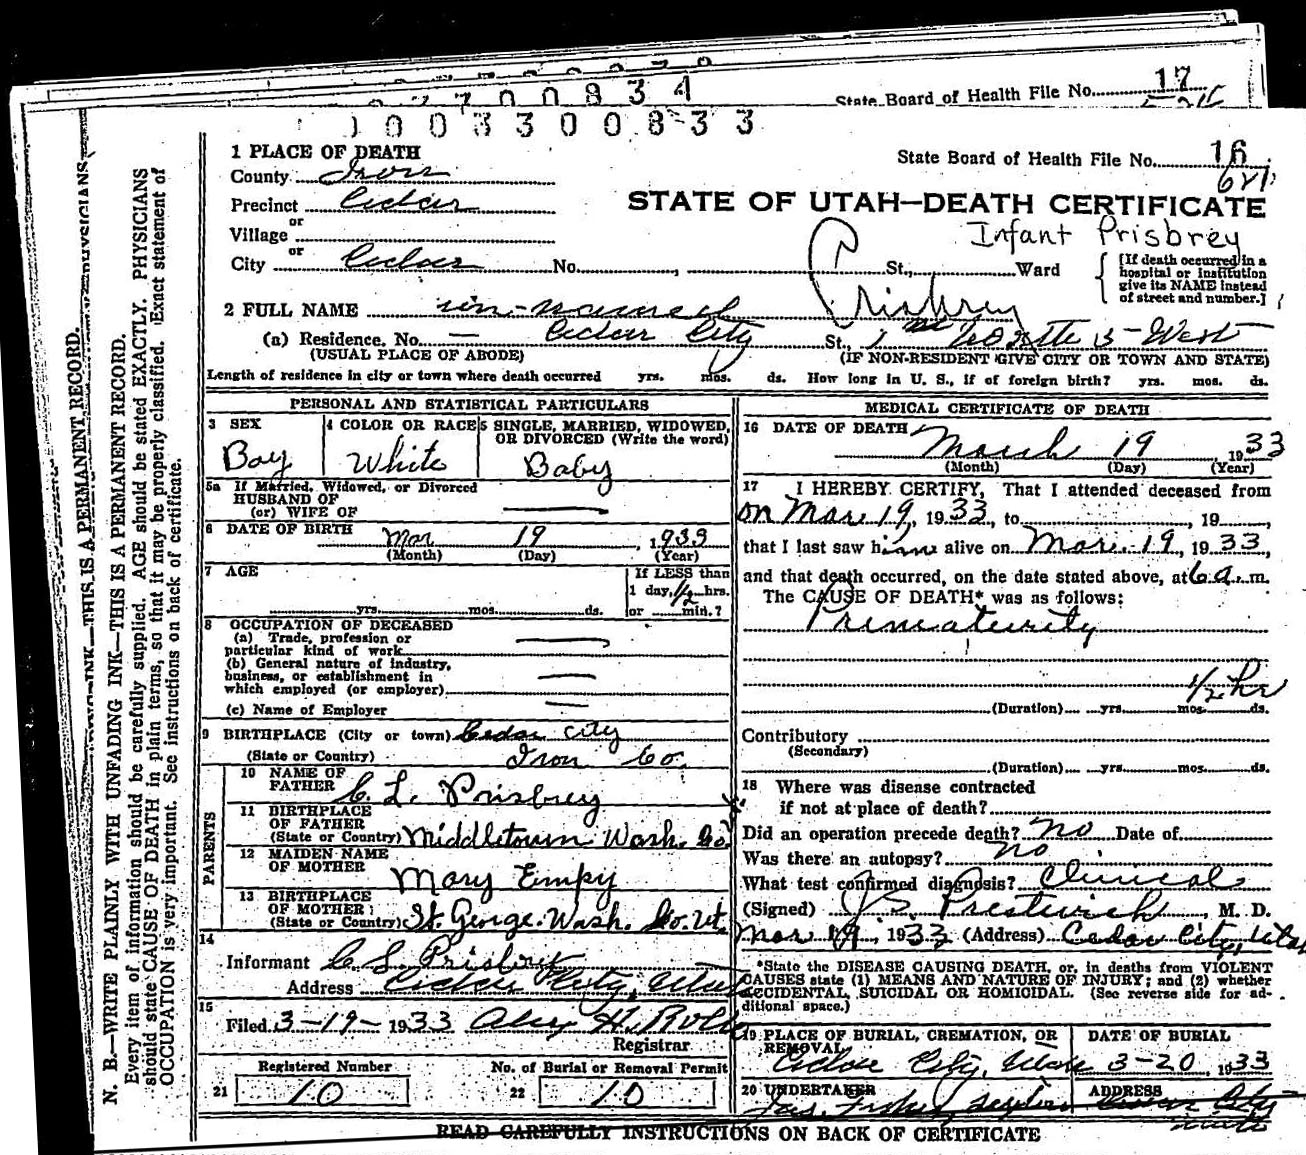 State Board of Health File No. 17
0 0 8 3 4
1 0 0 3 3 0 0 8 3 3
State Board of Health File No. 16
621
STATE OF UTAH—DEATH CERTIFICATE
Infant Prisbrey
1 PLACE OF DEATH
County Iron
Precinct Cedar
or
Village
or
City Cedar No. , St., Ward
[If death occurred in a hospital or institution give its NAME instead of street and number.]
2 FULL NAME un-named Prisbrey
(a) Residence. No. — Cedar City St., West
(USUAL PLACE OF ABODE) (IF NON-RESIDENT GIVE CITY OR TOWN AND STATE)
Length of residence in city or town where death occurred yrs. mos. ds. How long in U. S., if of foreign birth? yrs. mos. ds.
PERSONAL AND STATISTICAL PARTICULARS
3 SEX Boy
4 COLOR OR RACE White
5 SINGLE, MARRIED, WIDOWED, OR DIVORCED (Write the word) Baby
5a If Married, Widowed, or Divorced
HUSBAND OF
(or) WIFE OF —
6 DATE OF BIRTH Mar 19, 1933
(Month) (Day) (Year)
7 AGE yrs. mos. ds.
If LESS than
1 day, 1/2 hrs.
or min.?
8 OCCUPATION OF DECEASED
(a) Trade, profession or
particular kind of work —
(b) General nature of industry,
business, or establishment in
which employed (or employer) —
(c) Name of Employer —
9 BIRTHPLACE (City or town) Cedar City
(State or Country) Iron Co.
PARENTS
10 NAME OF FATHER C. L. Prisbrey
11 BIRTHPLACE OF FATHER
(State or Country) Middletown Wash. Co.
12 MAIDEN NAME OF MOTHER Mary Empy
13 BIRTHPLACE OF MOTHER
(State or Country) St. George. Wash. Co. Ut.
14
Informant C L Prisbrey
Address Cedar City, Utah
15
Filed 3-19-1933 Alex H.
Registrar
Registered Number No. of Burial or Removal Permit
21 10 22 10
MEDICAL CERTIFICATE OF DEATH
16 DATE OF DEATH March 19 1933
(Month) (Day) (Year)
17 I HEREBY CERTIFY, That I attended deceased from
on Mar 19, 1933, to , 19 ,
that I last saw him alive on Mar. 19, 1933,
and that death occurred, on the date stated above, at 6 a. m.
The CAUSE OF DEATH* was as follows:
Prematurity
1/2 hr
(Duration) yrs. mos. ds.
Contributory
(Secondary)
(Duration) yrs. mos. ds.
18 Where was disease contracted
if not at place of death?
Did an operation precede death? no Date of
Was there an autopsy? no
What test confirmed diagnosis? Clinical
(Signed) J. S. Prestwich, M. D.
Mar 19, 1933 (Address) Cedar City, Utah
*State the DISEASE CAUSING DEATH, or, in deaths from VIOLENT
CAUSES state (1) MEANS AND NATURE OF INJURY; and (2) whether
ACCIDENTAL, SUICIDAL OR HOMICIDAL. (See reverse side for ad-
ditional space.)
19 PLACE OF BURIAL, CREMATION, OR REMOVAL DATE OF BURIAL
Cedar City, Utah 3-20, 1933
20 UNDERTAKER ADDRESS
Cedar City
READ CAREFULLY INSTRUCTIONS ON BACK OF CERTIFICATE
N. B.—WRITE PLAINLY WITH UNFADING INK—THIS IS A PERMANENT RECORD.
Every item of information should be carefully supplied. AGE should be stated EXACTLY. PHYSICIANS
should state CAUSE OF DEATH in plain terms, so that it may be properly classified. Exact statement of
OCCUPATION is very important. See instructions on back of certificate.
INK—THIS IS A PERMANENT RECORD.
PHYSICIANS